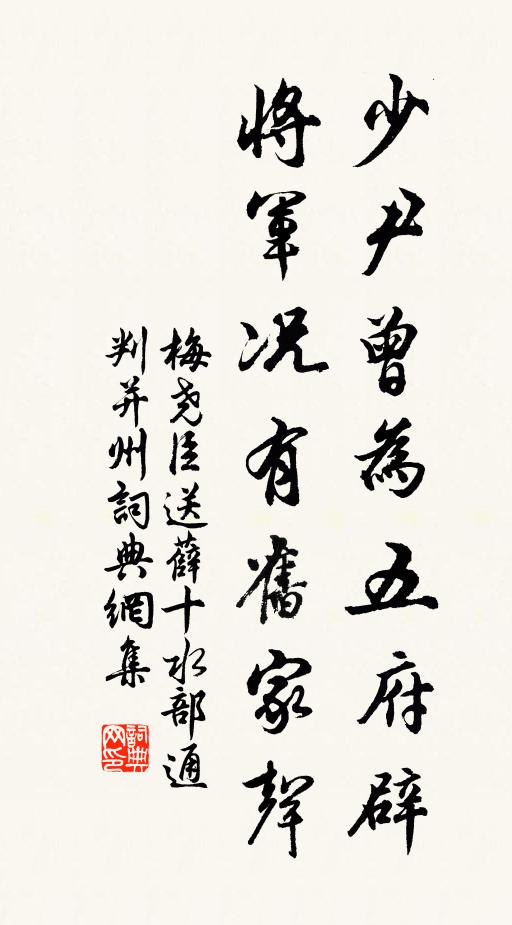 少尹曾為五府辟
將軍況有舊家聲
梅堯臣送薛十水部通
判并州詞典網集
詞典
网印